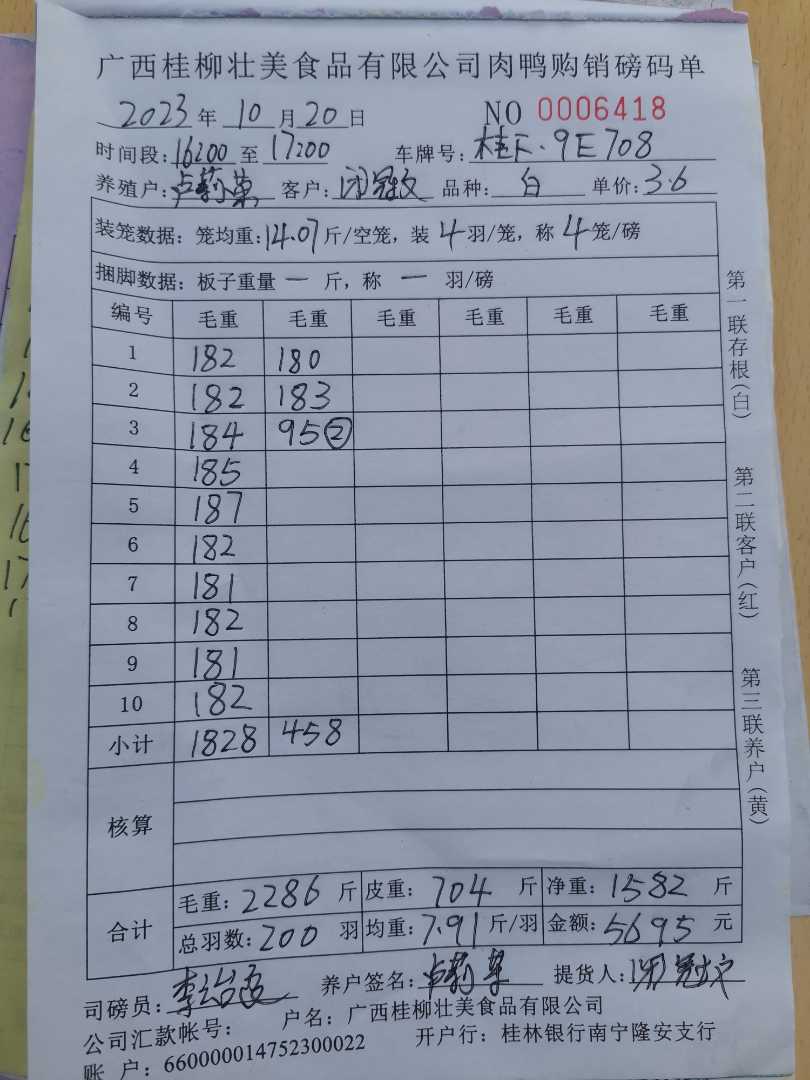 广西桂柳壮美食品有限公司肉鸭购销磅码单
2023年10月20日 NO 0006418
时间段:16200至17200 车牌号:桂F·9E708
养殖户:卢莉 客户:闭冠文 品种:白 单价:3.6
装笼数据:笼均重:14.07斤/空笼,装4羽/笼,称4笼/磅
捆脚数据:板子重量一斤,称一羽/磅
编号 毛重 毛重 毛重 毛重 毛重 毛重
1 182 180
2 182 183
3 184 95②
4 185
5 187
6 182
7 181
8 182
9 181
10 182
小计 1828 458
核算
合计 毛重:2286斤 皮重:704斤 净重:1582斤
总羽数:200羽 均重:7.91斤/羽 金额:5695元
司磅员:李 养户签名:卢莉 提货人:闭冠文
公司汇款帐号: 户名:广西桂柳壮美食品有限公司
账 户:660000014752300022 开户行:桂林银行南宁隆安支行
第一联存根(白)
第二联客户(红)
第三联养户(黄)